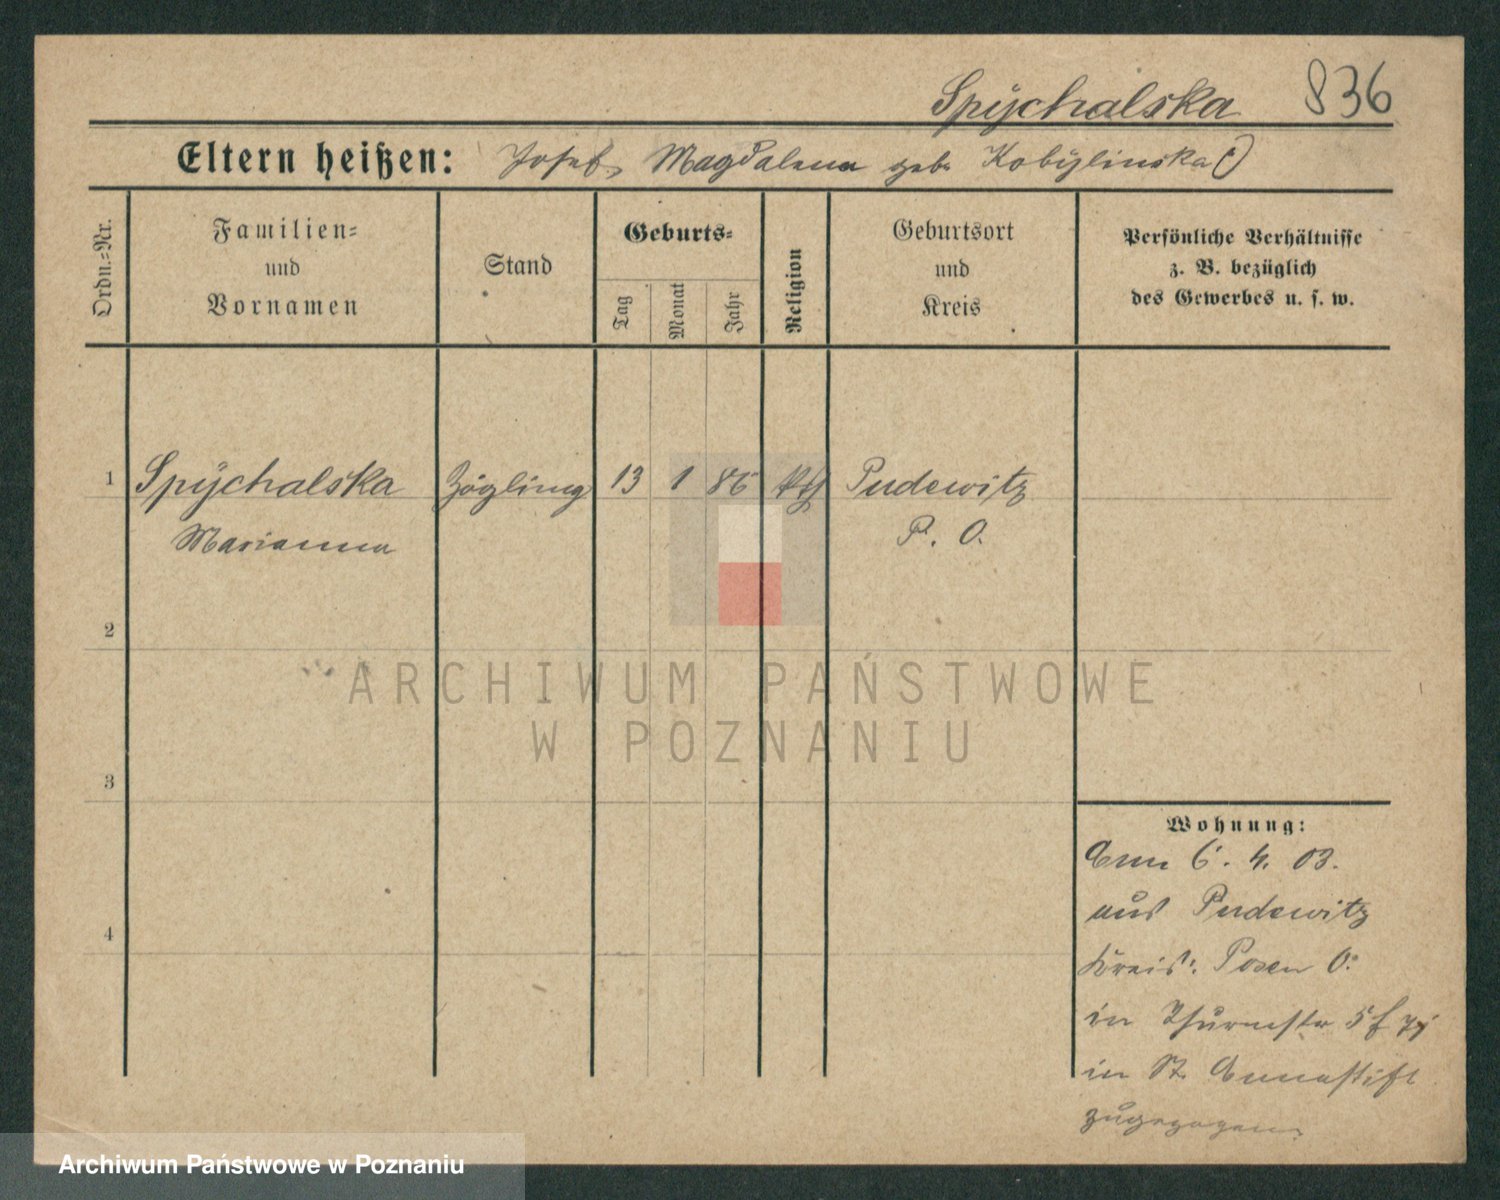 Spÿchalska 836
Eltern heißen: Josef, Magdalena geb. Kobÿlinska
Ordn.-Nr.
Familien-
und
Vornamen
Stand
Geburts-
Tag
Monat
Jahr
Religion
Geburtsort
und
Kreis
Persönliche Verhältnisse
z. B. bezüglich
des Gewerbes u. s. w.
1 Spÿchalska Zögling 13 1 86 kth Pudewitz
Marianna P. O.
2
3
4
ARCHIWUM PAŃSTWOWE
W POZNANIU
Wohnung:
Am 6. 4. 03.
aus Pudewitz
Kreis: Posen O.
in Thurmstr. 5
in St. Annastift
zugezogen
Archiwum Państwowe w Poznaniu